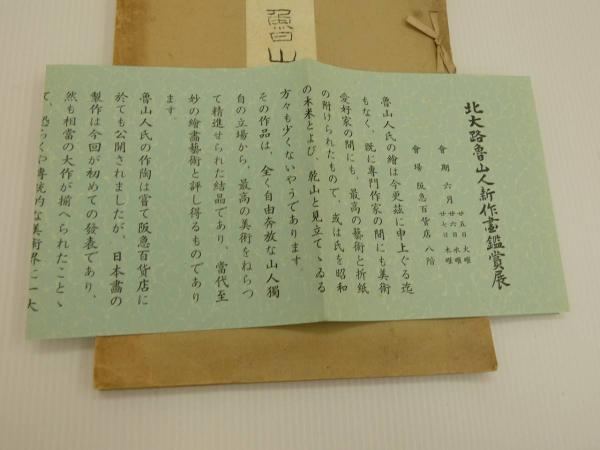 魯山
北大路魯山人新作画鑑賞展
會期 六月 廿五日 火曜
廿六日 水曜
廿七日 木曜
會場 阪急百貨店 八階
魯山人氏の繪は今更茲に申上ぐる迄
もなく、既に専門作家の間にも美術
愛好家の間にも、最高の藝術と折紙
の附けられたもので、或は氏を昭和
の木米とよび、乾山と見立てゝゐる
方々も少くないやうであります
その作品は、全く自由奔放な山人獨
自の立場から、最高の美術をねらつ
て精進せられた結晶であり、當代至
妙の繪畫藝術と評し得るものであり
ます。
魯山人氏の作陶は嘗て阪急百貨店に
於ても公開されましたが、日本畫の
製作は今回が初めての發表であり、
然も相當の大作が揃へられたことゝ
て、恐らくや傳統的な美術界に一大